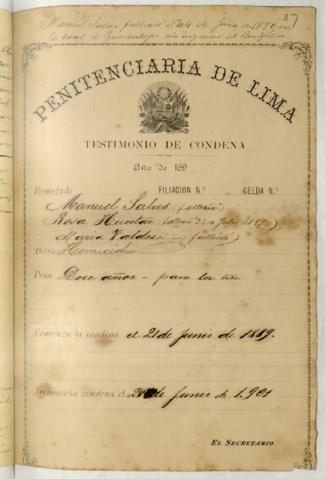 37
Manuel Salas falleció el 24 de Junio de 1890 en
la de Guadalupe sin ingresar al
PENITENCIARIA DE LIMA
TESTIMONIO DE CONDENA
Año de 189
Rematado FILIACION N.º CELDA N.º
Manuel Salas (falleció)
Rosa
Maria Valdes (falleció)
Delito Homicidio
Pena Doce años - para los tres
Comienza la condena el 21 de Junio de 1889.
Terminaria condena el 21 de Junio de 1,901
EL SECRETARIO